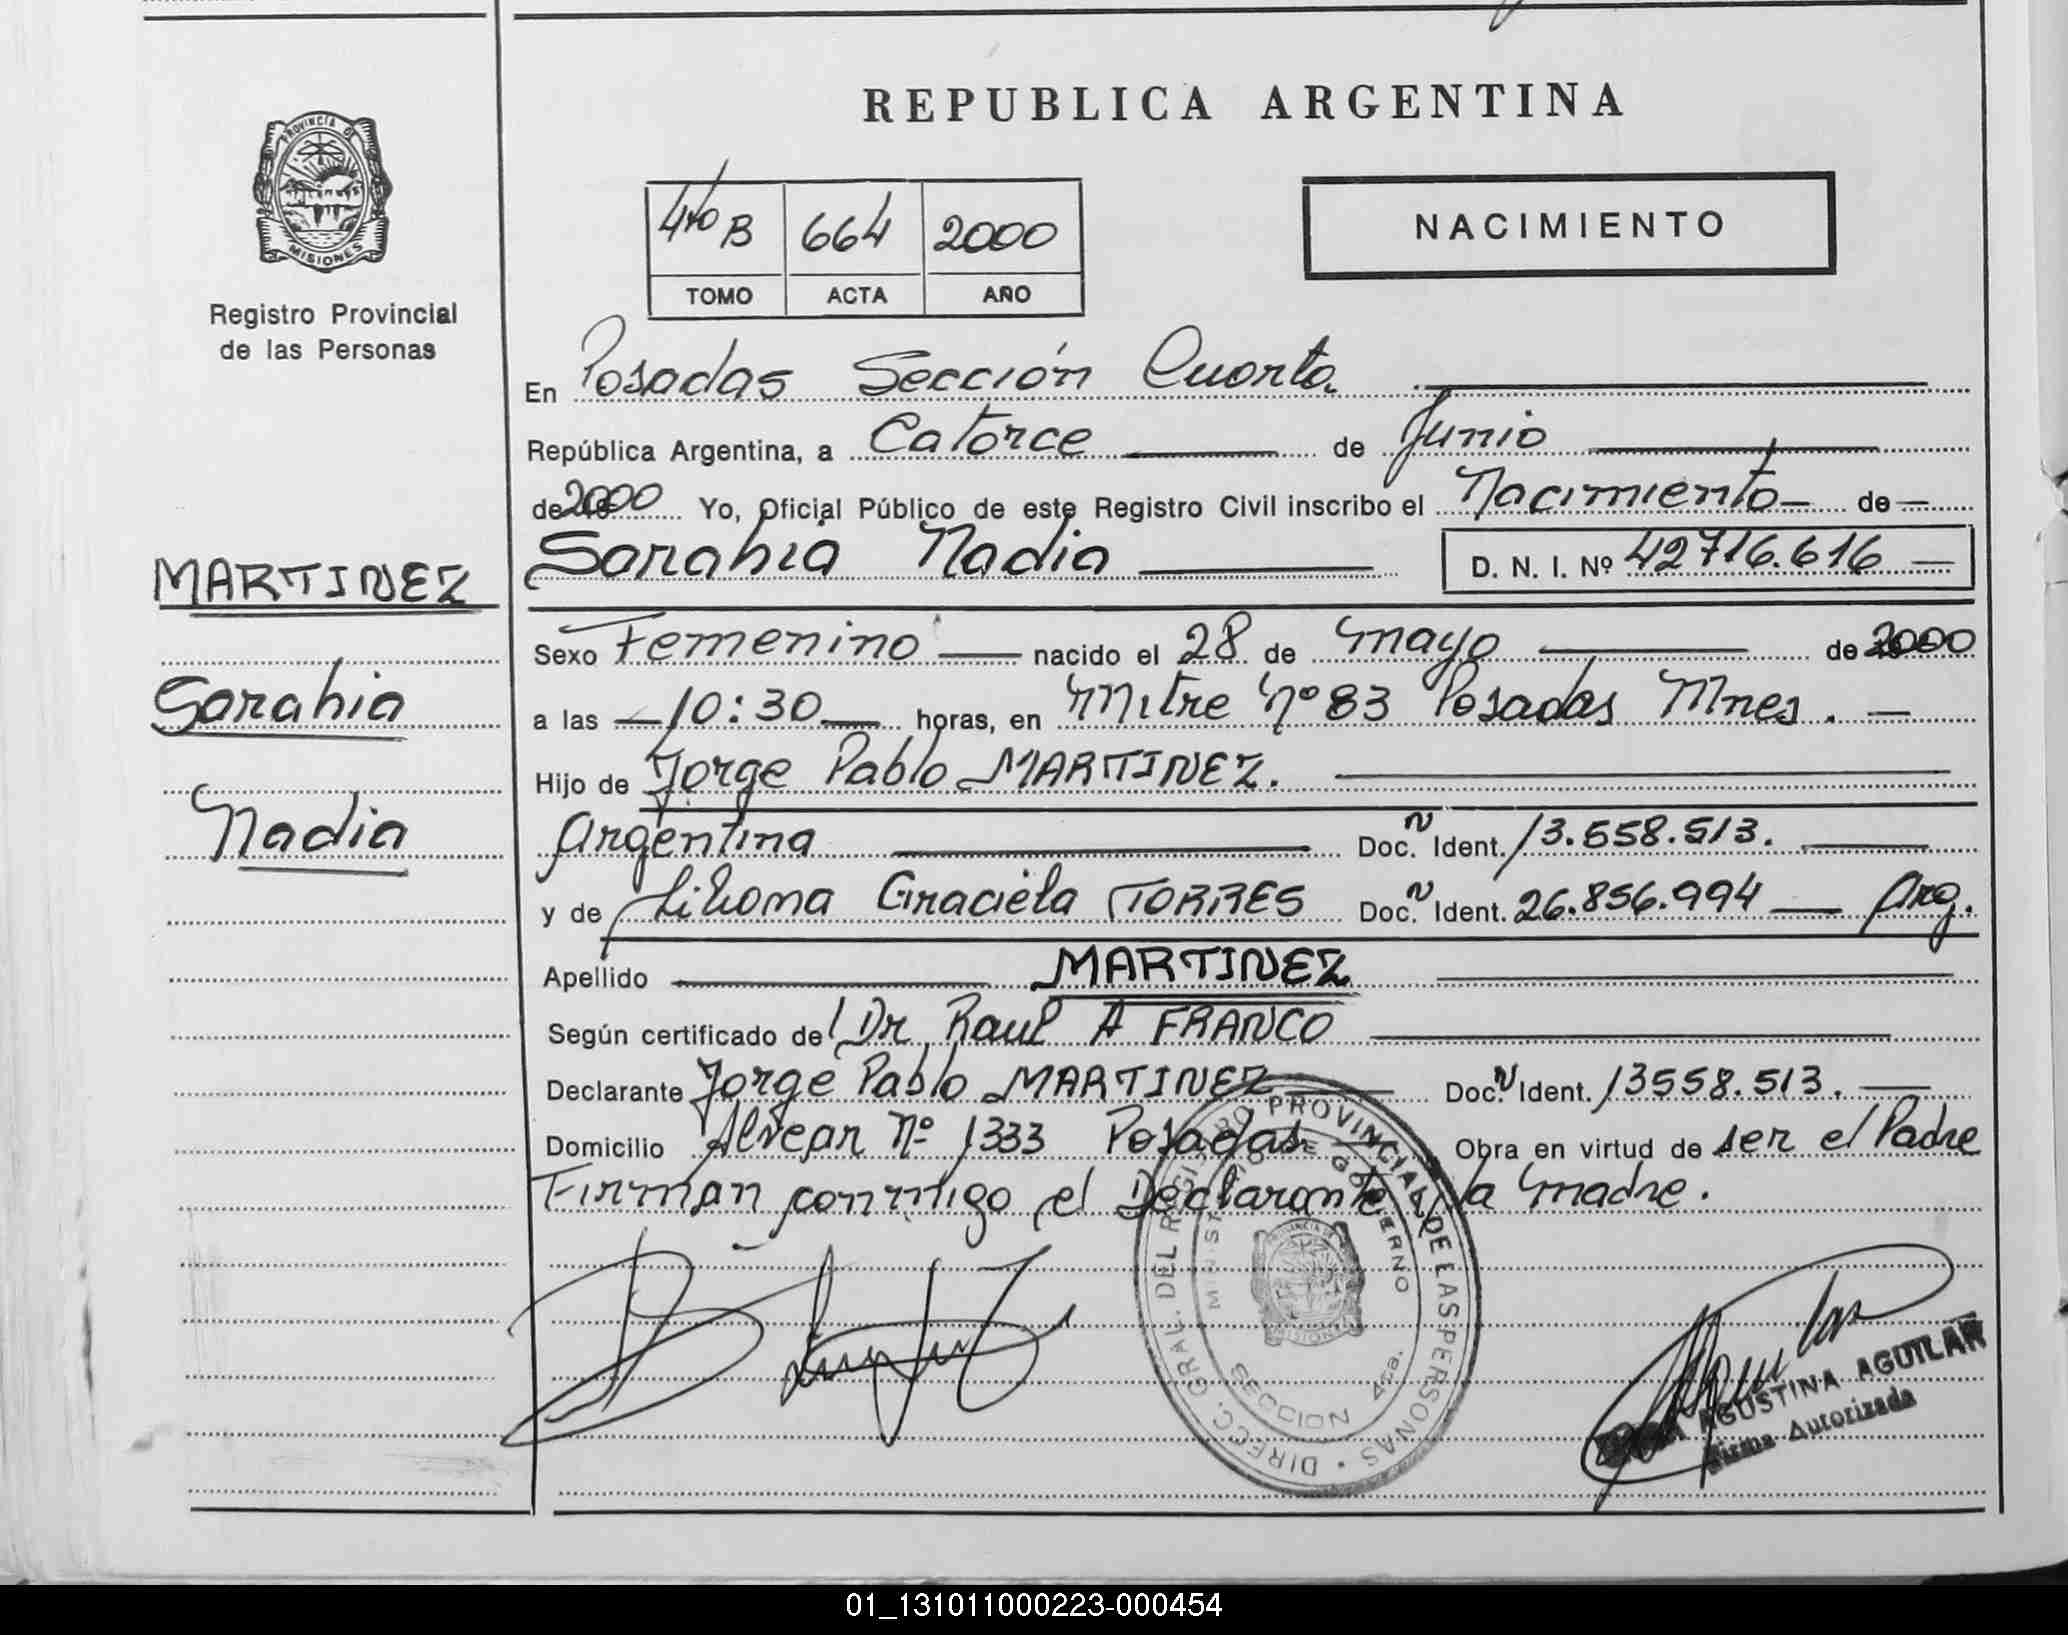 REPUBLICA ARGENTINA
PROVINCIA DE
MISIONES
Registro Provincial
de las Personas
4to B 664 2000
TOMO ACTA AÑO
NACIMIENTO
En Posadas Sección Cuarta
República Argentina, a Catorce de Junio
de 2000 Yo, Oficial Público de este Registro Civil inscribo el Nacimiento de
Sarahia Nadia D. N. I. Nº 42716.616
MARTINEZ
Sarahia
Nadia
Sexo Femenino nacido el 28 de mayo de 2000
a las 10:30 horas, en Mitre Nº 83 Posadas Mnes.
Hijo de Jorge Pablo MARTINEZ.
Argentina Doc. N Ident. 13.558.513.
y de Liliana Graciela TORRES Doc. N Ident. 26.856.994 Arg.
Apellido MARTINEZ
Según certificado del Dr Raul A FRANCO
Declarante Jorge Pablo MARTINEZ Doc. N Ident. 13558.513.
Domicilio Alvear Nº 1333 Posadas Obra en virtud de ser el Padre
Firman conmigo el Declarante y la madre.
DIRECC. GRAL. DEL REGISTRO PROVINCIAL DE LAS PERSONAS
MINISTERIO DE GOBIERNO
MISIONES
SECCION 4ta.
AGUSTINA AGUILAR
Firma Autorizada
01_131011000223-000454